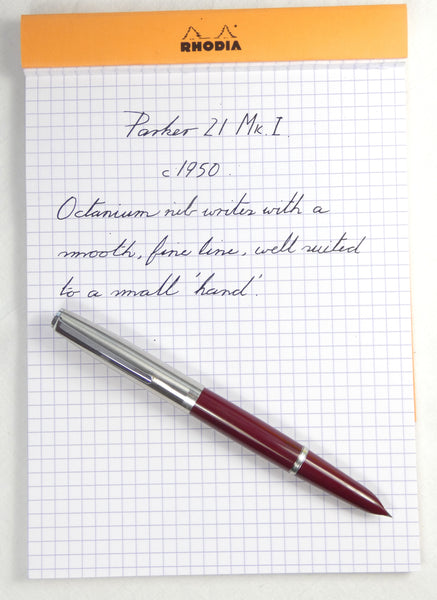 RHODIA
Parker 21 Mk.I.
c1950.
Octanium nib writes with a
smooth, fine line, well suited
to a small 'hand'.